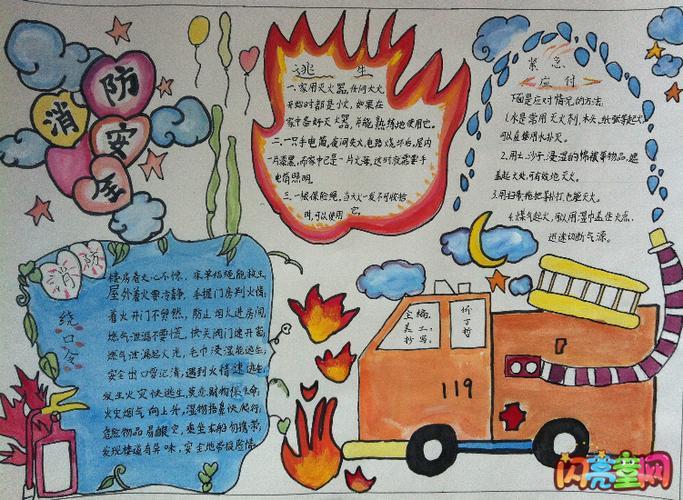 消防安全
逃生
一.家用灭火器.任何大火
开始时都是小火,如果在
家中备好灭火器,并能熟练地使用它。
二.一只手电筒,夜间失火,电路烧坏后,屋内
一片漆黑,而家中已是一片火海,这时就需要手
电筒照明。
三.一根保险绳,当大火一发不可收拾
时,可以使用它。
紧急
应付
下面是应对情况的方法:
1.水是常用灭火剂,木头,纸张等起火,
可以直接用水扑灭。
2.用土,沙子,浸湿的棉被等物品,遮
盖起火处,可有效地灭火。
3.用扫帚,拖把等扑打,也能灭火。
4.煤气起火,可以用湿巾盖住火点,
迅速切断气源。
消防
绕口令
楼房着火心不惊,床单结绳能救生
屋外着火要冷静,手摸门房判火情
着火开门不贸然,防止烟火进房间
燃气泄漏不要慌,快关阀门速开窗
燃气泄漏起火光,毛巾浸湿能逃生
安全出口要记清,遇到火情速逃生
发生火灾快逃生,莫恋财物保生命
火灾烟气向上升,湿物捂鼻快爬行
危险物品易酿灾,乘坐车船勿携带
发现楼道有异味,安全地带报险情
主编:
美工:
抄写:
119
闪亮童网